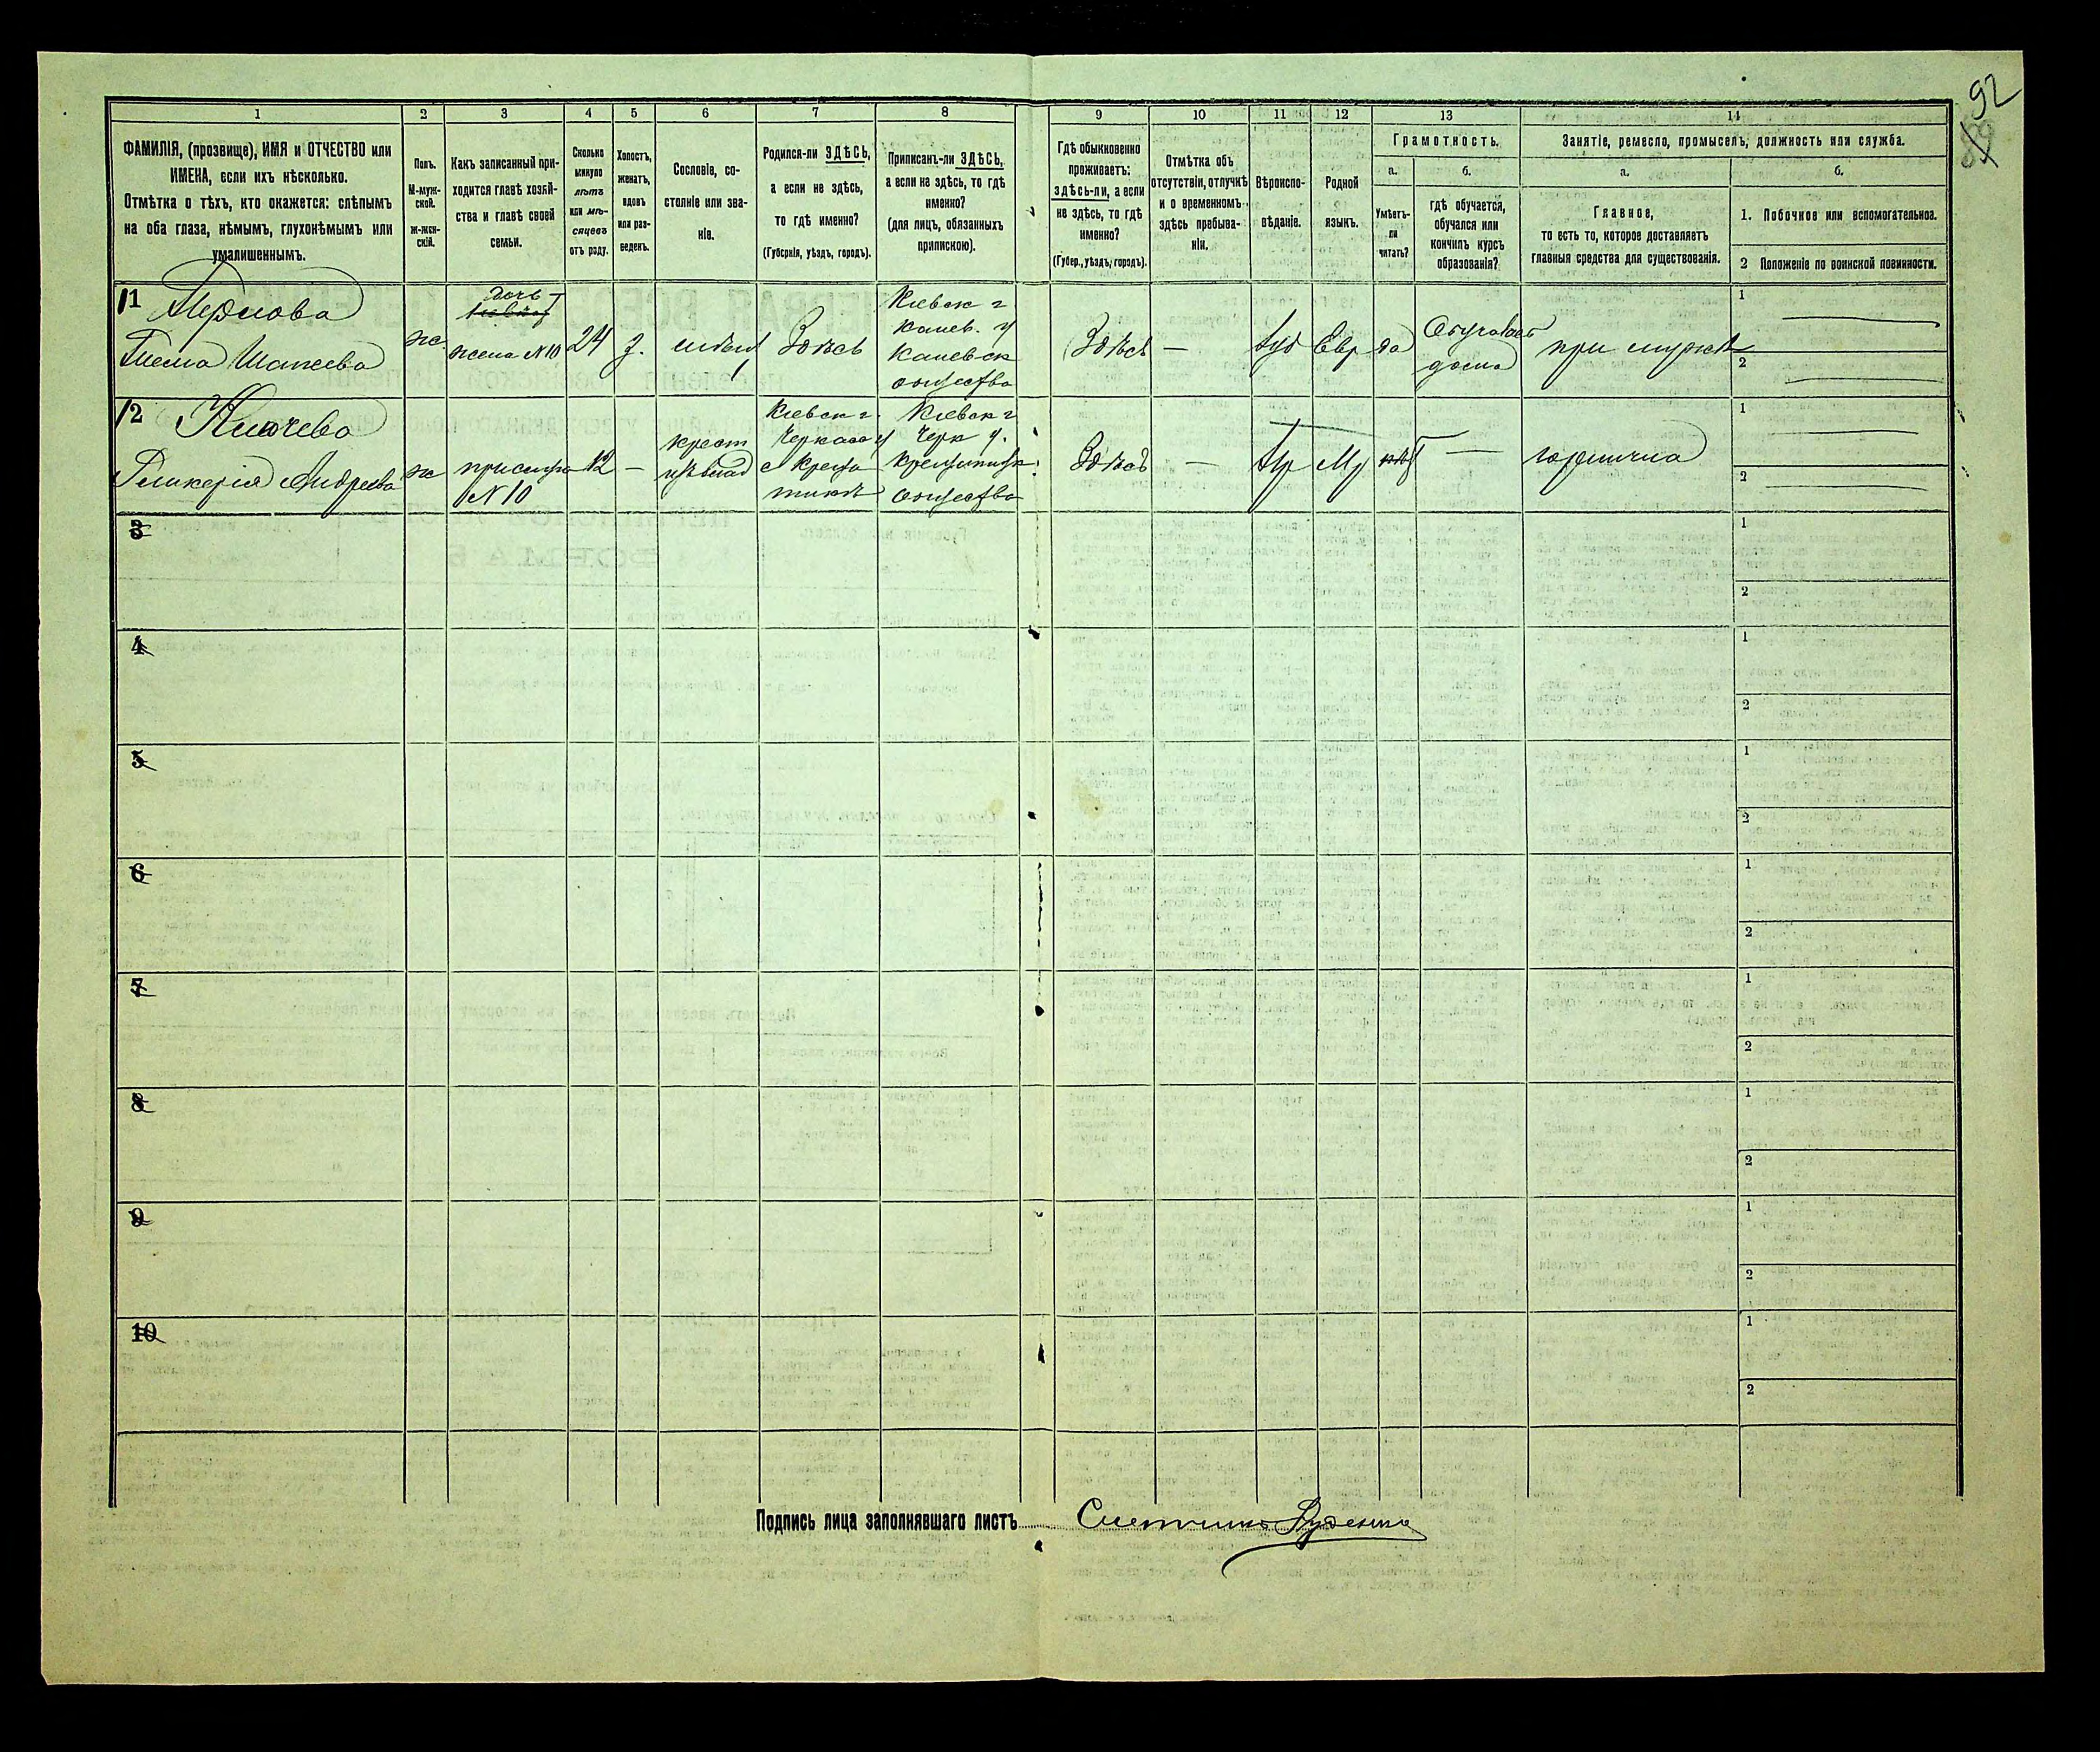 92
1 2 3 4 5 6 7 8 9 10 11 12 13 14
ФАМИЛІЯ, (прозвище), ИМЯ и ОТЧЕСТВО или
ИМЕНА, если ихъ нѣсколько.
Отмѣтка о тѣхъ, кто окажется: слѣпымъ
на оба глаза, нѣмымъ, глухонѣмымъ или
умалишеннымъ.
Полъ.
М-муж-
ской.
ж-жен-
скій.
Какъ записанный при-
ходится главѣ хозяй-
ства и главѣ своей
семьи.
Сколько
минуло
лѣтъ
или мѣ-
сяцевъ
отъ роду.
Холостъ,
женатъ,
вдовъ
или раз-
веденъ.
Сословіе, со-
стояніе или зва-
ніе.
Родился-ли ЗДѢСЬ,
а если не здѣсь,
то гдѣ именно?
(Губернія, уѣздъ, городъ).
Приписанъ-ли ЗДѢСЬ,
а если не здѣсь, то гдѣ
именно?
(для лицъ, обязанныхъ
припискою).
Гдѣ обыкновенно
проживаетъ:
здѣсь-ли, а если
не здѣсь, то гдѣ
именно?
(Губер., уѣздъ, городъ).
Отмѣтка объ
отсутствіи, отлучкѣ
и о временномъ
здѣсь пребыва-
ніи.
Вѣроиспо-
вѣданіе.
Родной
языкъ.
Грамотность.
а.
Умѣетъ-
ли
читать?
б.
гдѣ обучается,
обучался или
кончилъ курсъ
образованія?
Занятіе, ремесло, промыселъ, должность или служба.
а.
Главное,
то есть то, которое доставляетъ
главныя средства для существованія.
б.
1. Побочное или вспомогательное.
2 Положеніе по воинской повинности.
11
ж
дочь
жена №10
24
з.
Здѣсь
Кіевск г
Канев. у
Каневск
общества
Здѣсь
—
Іуд
Евр
да
дома
при мужѣ
1
2
12
Гликерія Андреева
ж
прислуга
№10
12
—
крест
Кіевск г.
Черкасс у
с Креща
тикѣ
Кіевск г
Черк у.
общества
Здѣсь
—
—
горнична
1
2
3
1
2
4
1
2
5
1
2
6
1
2
7
1
2
8
1
2
9
1
2
10
1
2
Подпись лица заполнявшаго листъ
Счетчикъ Руденко